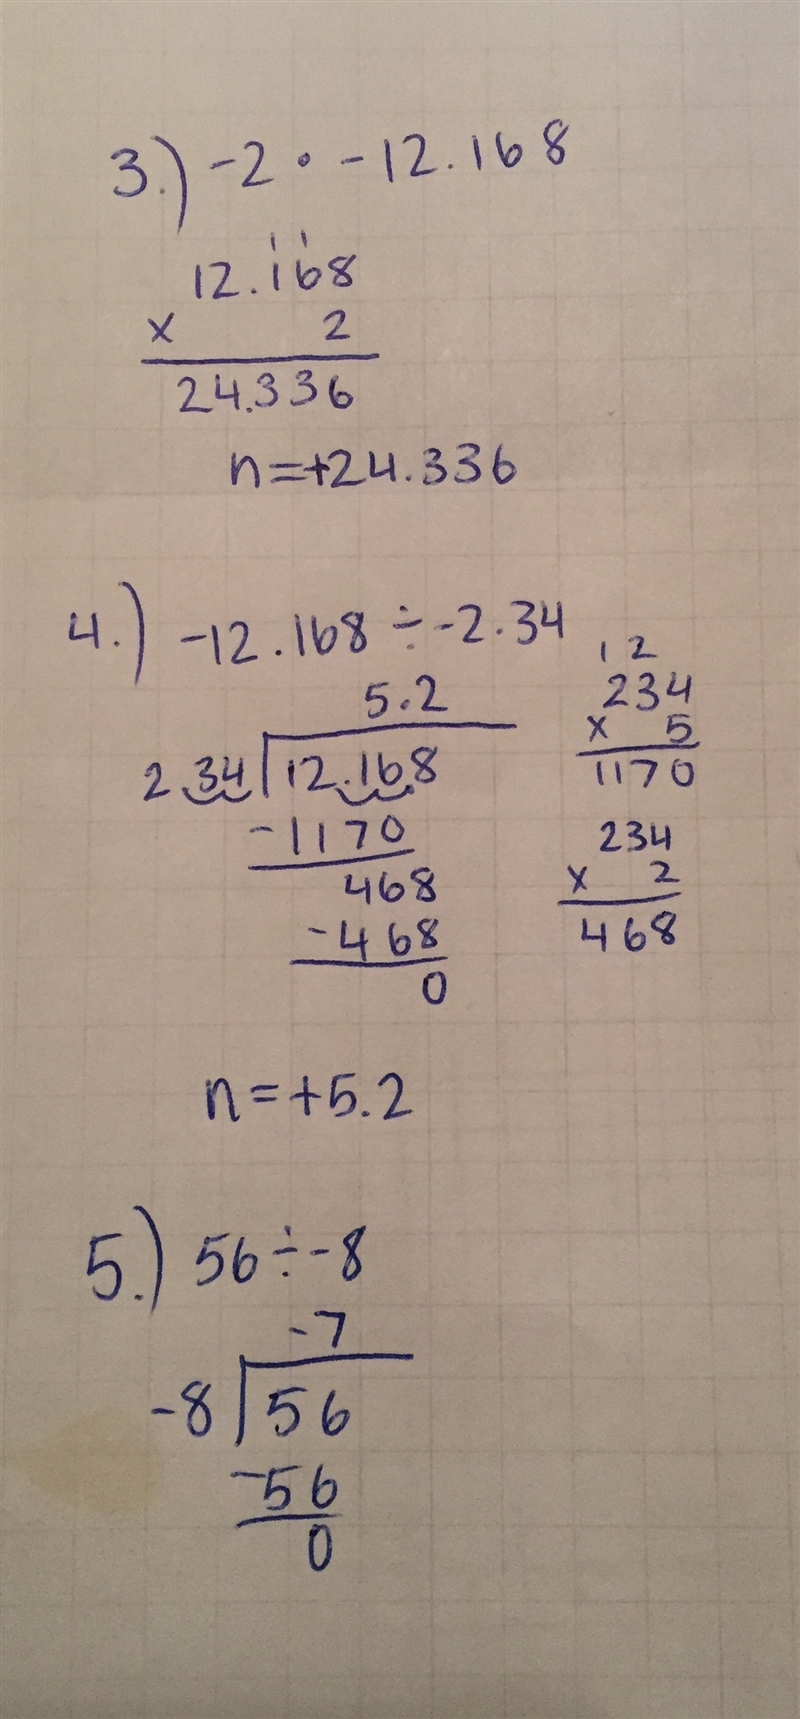 3.) -2 • -12.168
1 1
12.168
x 2
24.336
n=+24.336
4.) -12.168 ÷ -2.34
5.2
2.34 12.168
-1170
468
-468
0
1 2
234
x 5
1170
234
x 2
468
n=+5.2
5.) 56 ÷ -8
-7
-8 56
-56
0